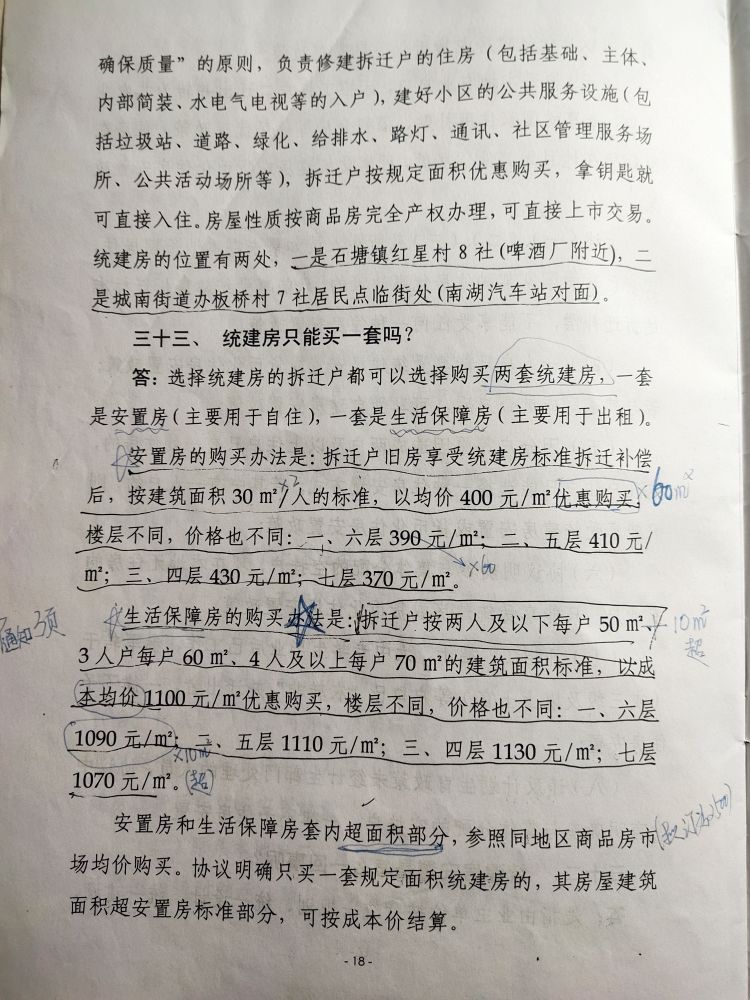 确保质量”的原则，负责修建拆迁户的住房（包括基础、主体、
内部简装、水电气电视等的入户），建好小区的公共服务设施（包
括垃圾站、道路、绿化、给排水、路灯、通讯、社区管理服务场
所、公共活动场所等），拆迁户按规定面积优惠购买，拿钥匙就
可直接入住。房屋性质按商品房完全产权办理，可直接上市交易。
统建房的位置有两处，一是石塘镇红星村8社（啤酒厂附近），二
是城南街道办板桥村7社居民点临街处（南湖汽车站对面）。
三十三、 统建房只能买一套吗？
答：选择统建房的拆迁户都可以选择购买两套统建房，一套
是安置房（主要用于自住），一套是生活保障房（主要用于出租）。
安置房的购买办法是：拆迁户旧房享受统建房标准拆迁补偿
×2
后，按建筑面积30㎡/人的标准，以均价400元/㎡优惠购买， ×60㎡
楼层不同，价格也不同：一、六层390元/㎡；二、五层410元/
㎡；三、四层430元/㎡；七层370元/㎡。 ×60
生活保障房的购买办法是：拆迁户按两人及以下每户50㎡、 10㎡
通知须 超
3人户每户60㎡、4人及以上每户70㎡的建筑面积标准，以成
本均价1100元/㎡优惠购买，楼层不同，价格也不同：一、六层
1090元/㎡；二、五层1110元/㎡；三、四层1130元/㎡；七层
×10㎡
1070元/㎡。（超）
安置房和生活保障房套内超面积部分，参照同地区商品房市
场均价购买。协议明确只买一套规定面积统建房的，其房屋建筑
面积超安置房标准部分，可按成本价结算。
- 18 -